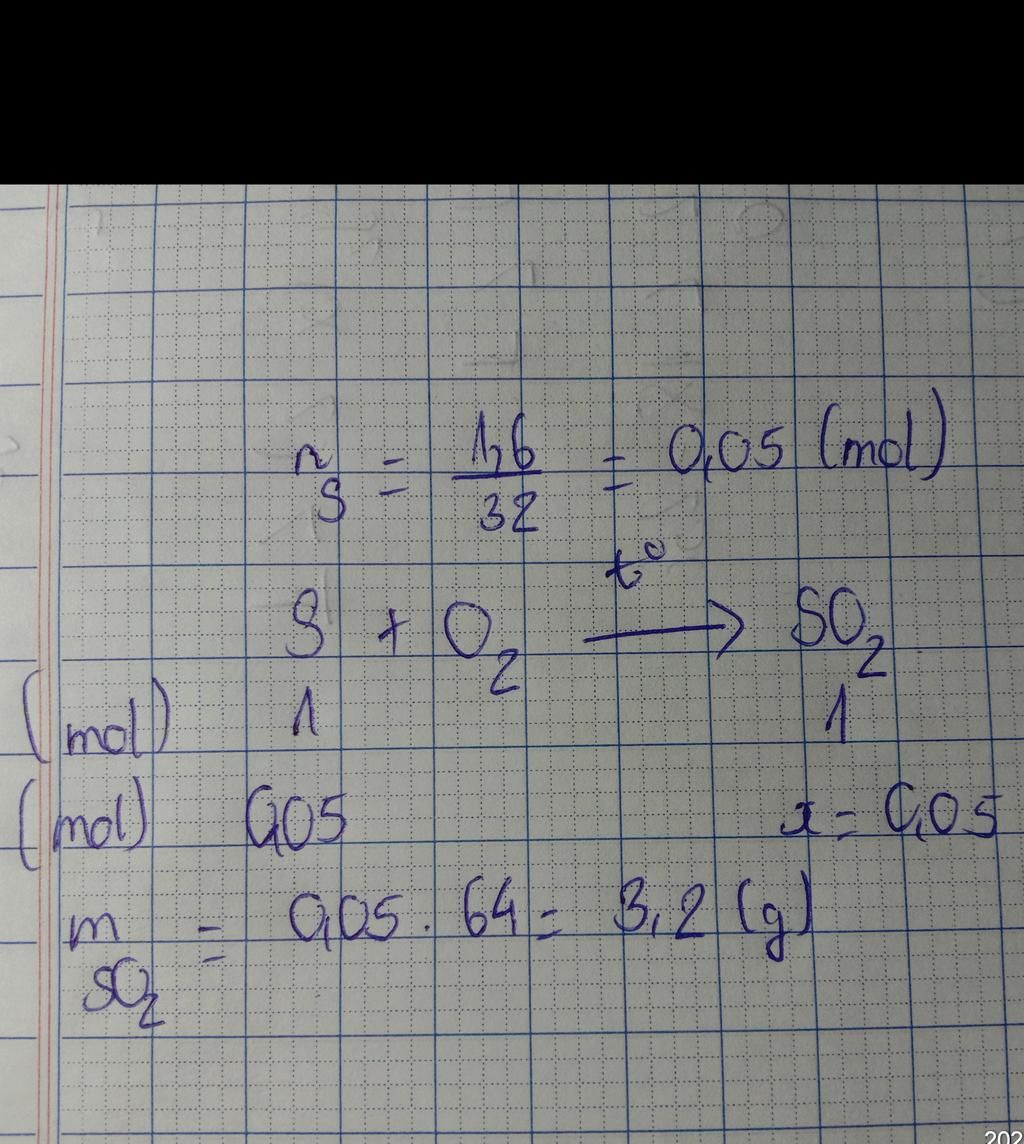 n_S = 1,6/32 = 0,05 (mol)
S + O₂ —t°→ SO₂
(mol) 1 1
(mol) 0,05 x = 0,05
m_SO₂ = 0,05 . 64 = 3,2 (g)
202